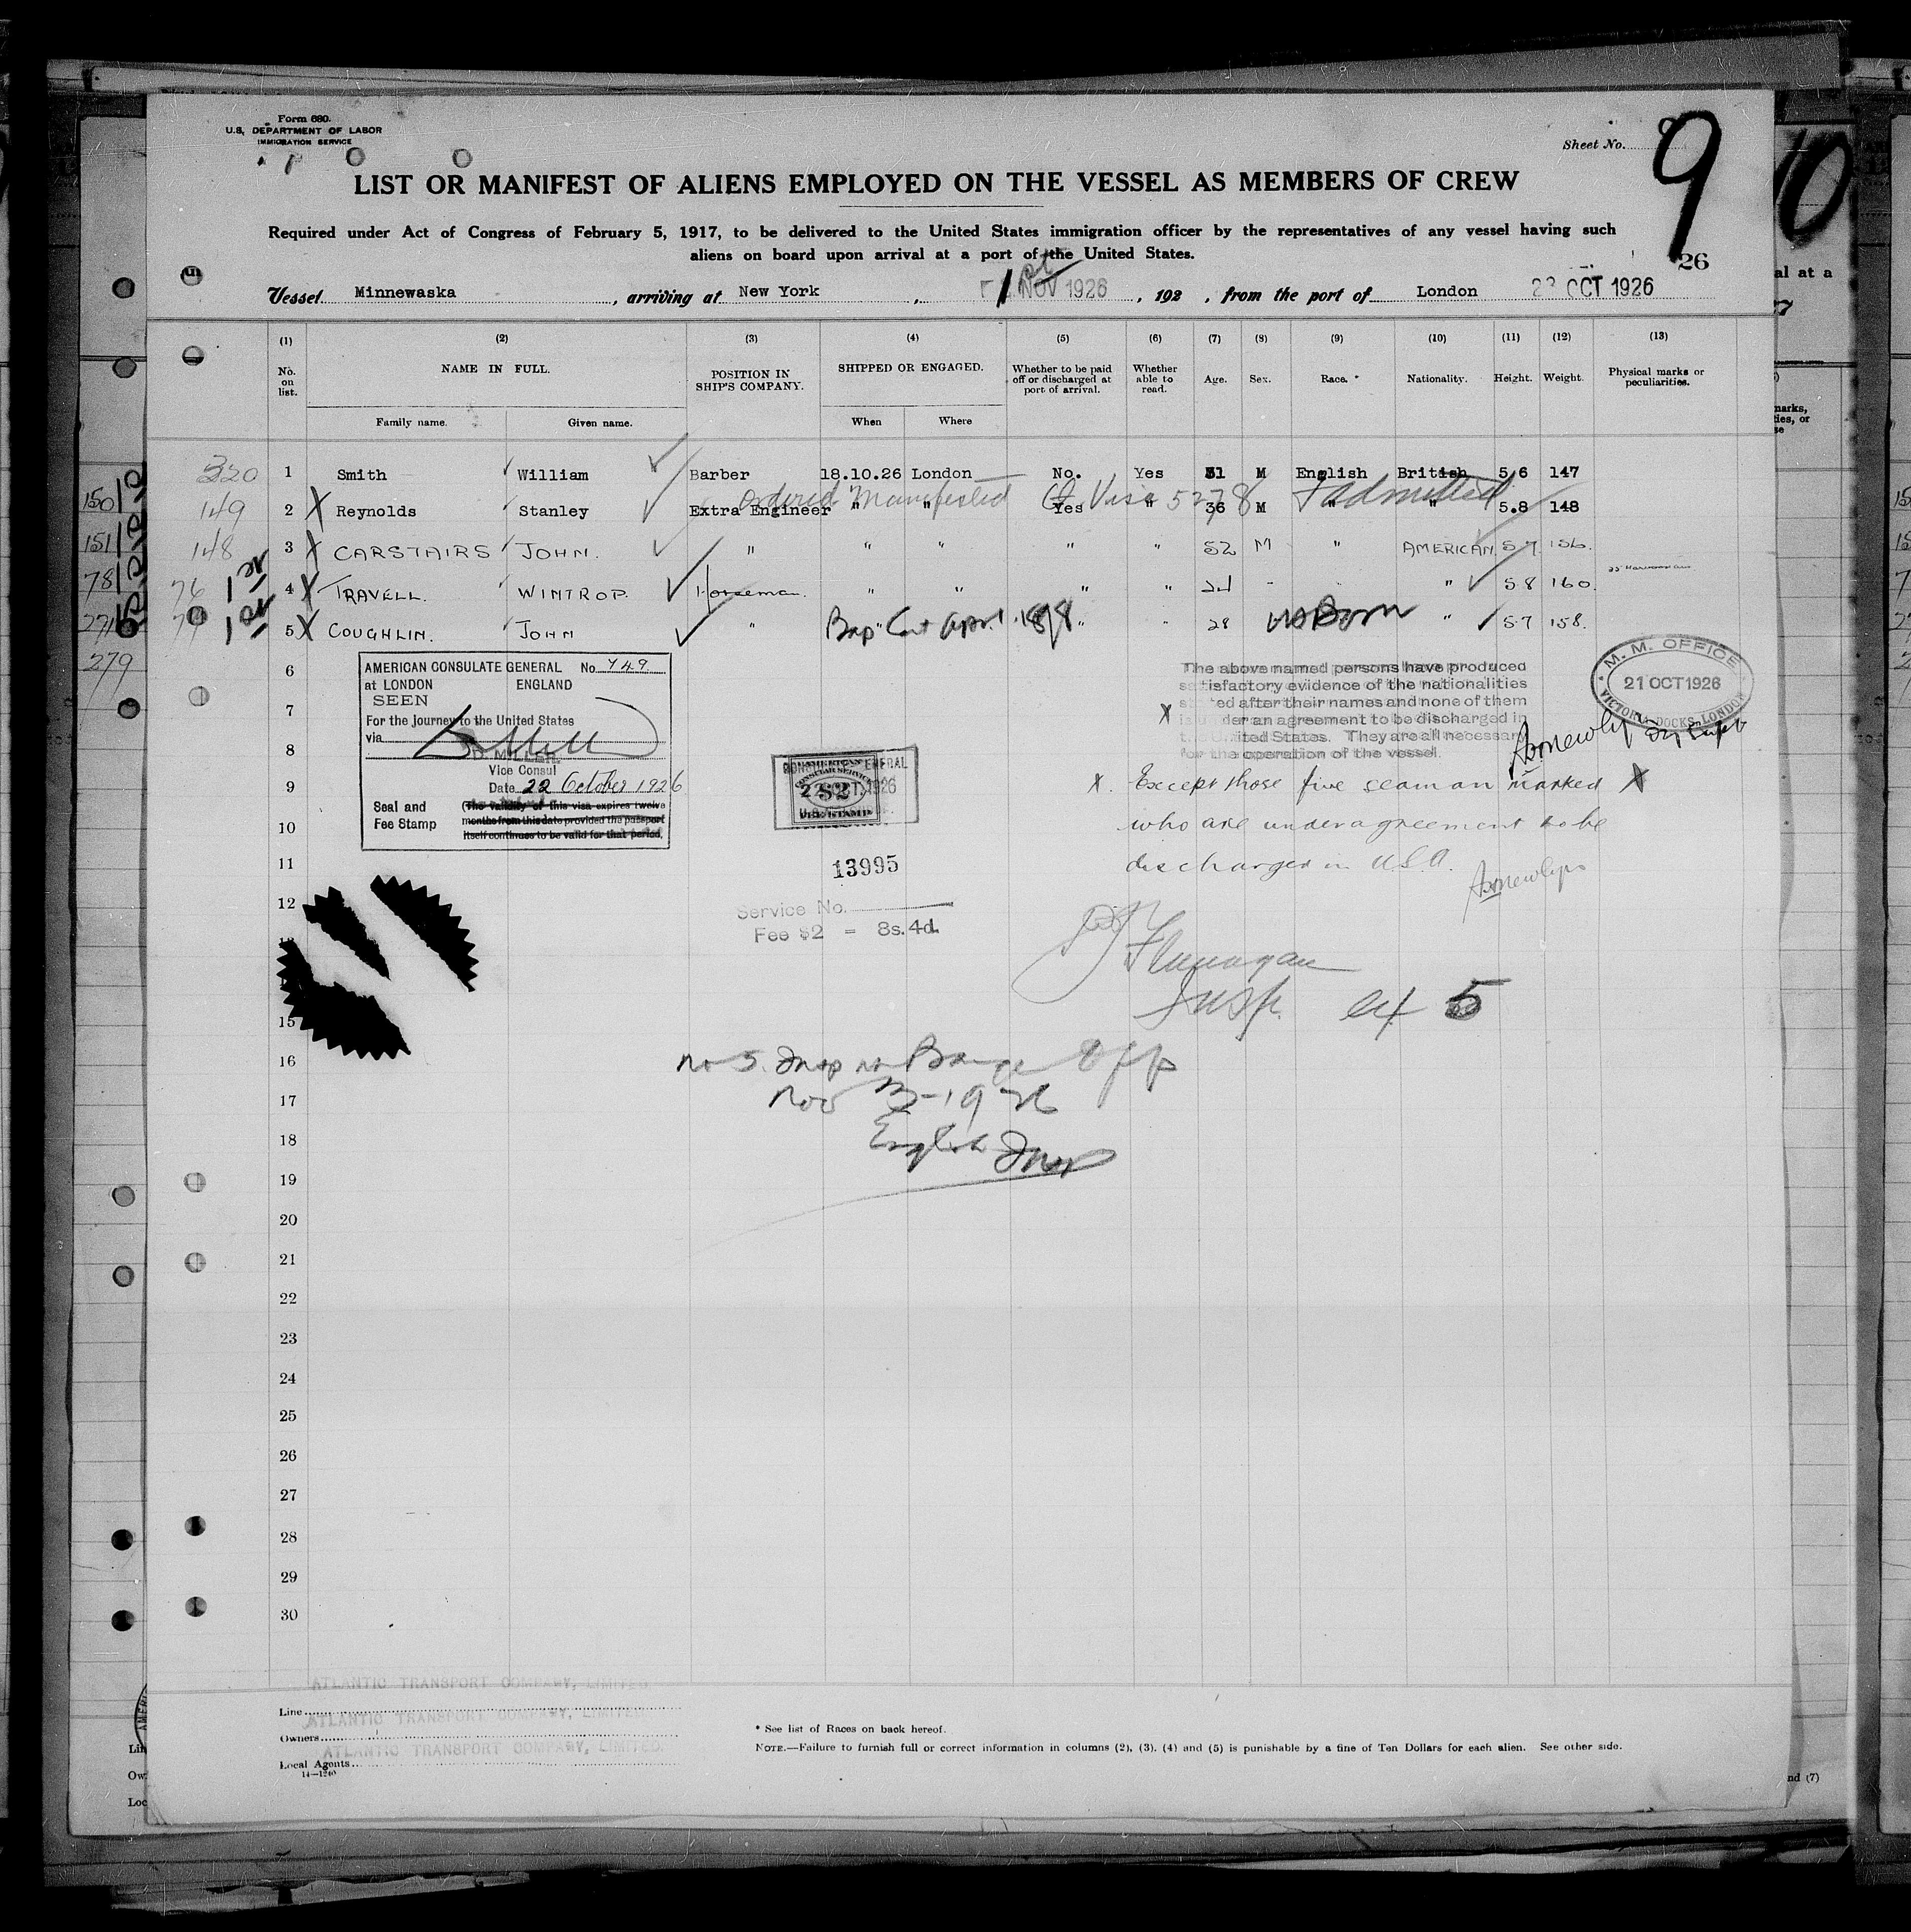 Form 680.
U.S. DEPARTMENT OF LABOR
IMMIGRATION SERVICE
Sheet No. 9
LIST OR MANIFEST OF ALIENS EMPLOYED ON THE VESSEL AS MEMBERS OF CREW
Required under Act of Congress of February 5, 1917, to be delivered to the United States immigration officer by the representatives of any vessel having such
aliens on board upon arrival at a port of the United States.
26
Vessel Minnewaska, arriving at New York, 1st NOV 1926, 192 , from the port of London OCT 1926
(1) (2) (3) (4) (5) (6) (7) (8) (9) (10) (11) (12) (13)
No. on list. NAME IN FULL. POSITION IN SHIP'S COMPANY. SHIPPED OR ENGAGED. Whether to be paid off or discharged at port of arrival. Whether able to read. Age. Sex. Race.* Nationality. Height. Weight. Physical marks or peculiarities.
Family name. Given name. When Where
320 1 Smith William Barber 18.10.26 London No. Yes 31 M English British 5.6 147
Ordered Manifested Visa 5278 admitted
149 2 X Reynolds Stanley Extra Engineer " " Yes " 36 M " " 5.8 148
148 3 X CARSTAIRS JOHN. " " " " " 52 M " AMERICAN 5 7 156
76 1st 4 X TRAVELL. WINTROP. Horseman. " " " " 24 " 5 8 160
77 1st 5 X COUGHLIN. JOHN " Bap Cert April 1898 " " 28 US Born " 5 7 158.
6
7
8
9
10
11
12
13
15
16
17
18
19
20
21
22
23
24
25
26
27
28
29
30
AMERICAN CONSULATE GENERAL No. 749
at LONDON ENGLAND
SEEN
For the journey to the United States
via
D. MILLER
Vice Consul
Date 22 October 1926
Seal and
Fee Stamp
(The validity of this visa expires twelve
months from this date provided the passport
itself continues to be valid for that period.
13995
Service No.
Fee $2 = 8s. 4d.
The above named persons have produced
satisfactory evidence of the nationalities
stated after their names and none of them
X is under an agreement to be discharged in
the United States. They are all necessary
for the operation of the vessel.
M. M. OFFICE
21 OCT 1926
VICTORIA DOCKS. LONDON
X. Except those five seaman marked X
who are under agreement to be
discharged in U.S.A.
Flanagan
Insp. ex 5
No 5. Insp at Barge Off
Nov 3-1926
English Insp
Line ATLANTIC TRANSPORT COMPANY, LIMITED
Owners ATLANTIC TRANSPORT COMPANY, LIMITED
Local Agents ATLANTIC TRANSPORT COMPANY, LIMITED.
14—1240
* See list of Races on back hereof.
NOTE.—Failure to furnish full or correct information in columns (2), (3), (4) and (5) is punishable by a fine of Ten Dollars for each alien. See other side.
10
al at a
150
151
78
271
279
nd (7)